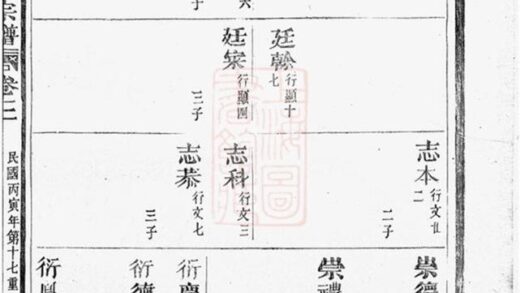 六
子
廷翰 行顯十七
廷寀 行顯四
三子
志本 行文廿二
二子
志科 行文三
志恭 行文七
三子
崇德
崇禮
衍慶
衍德
宗譜 卷二
民國丙寅年第十七重